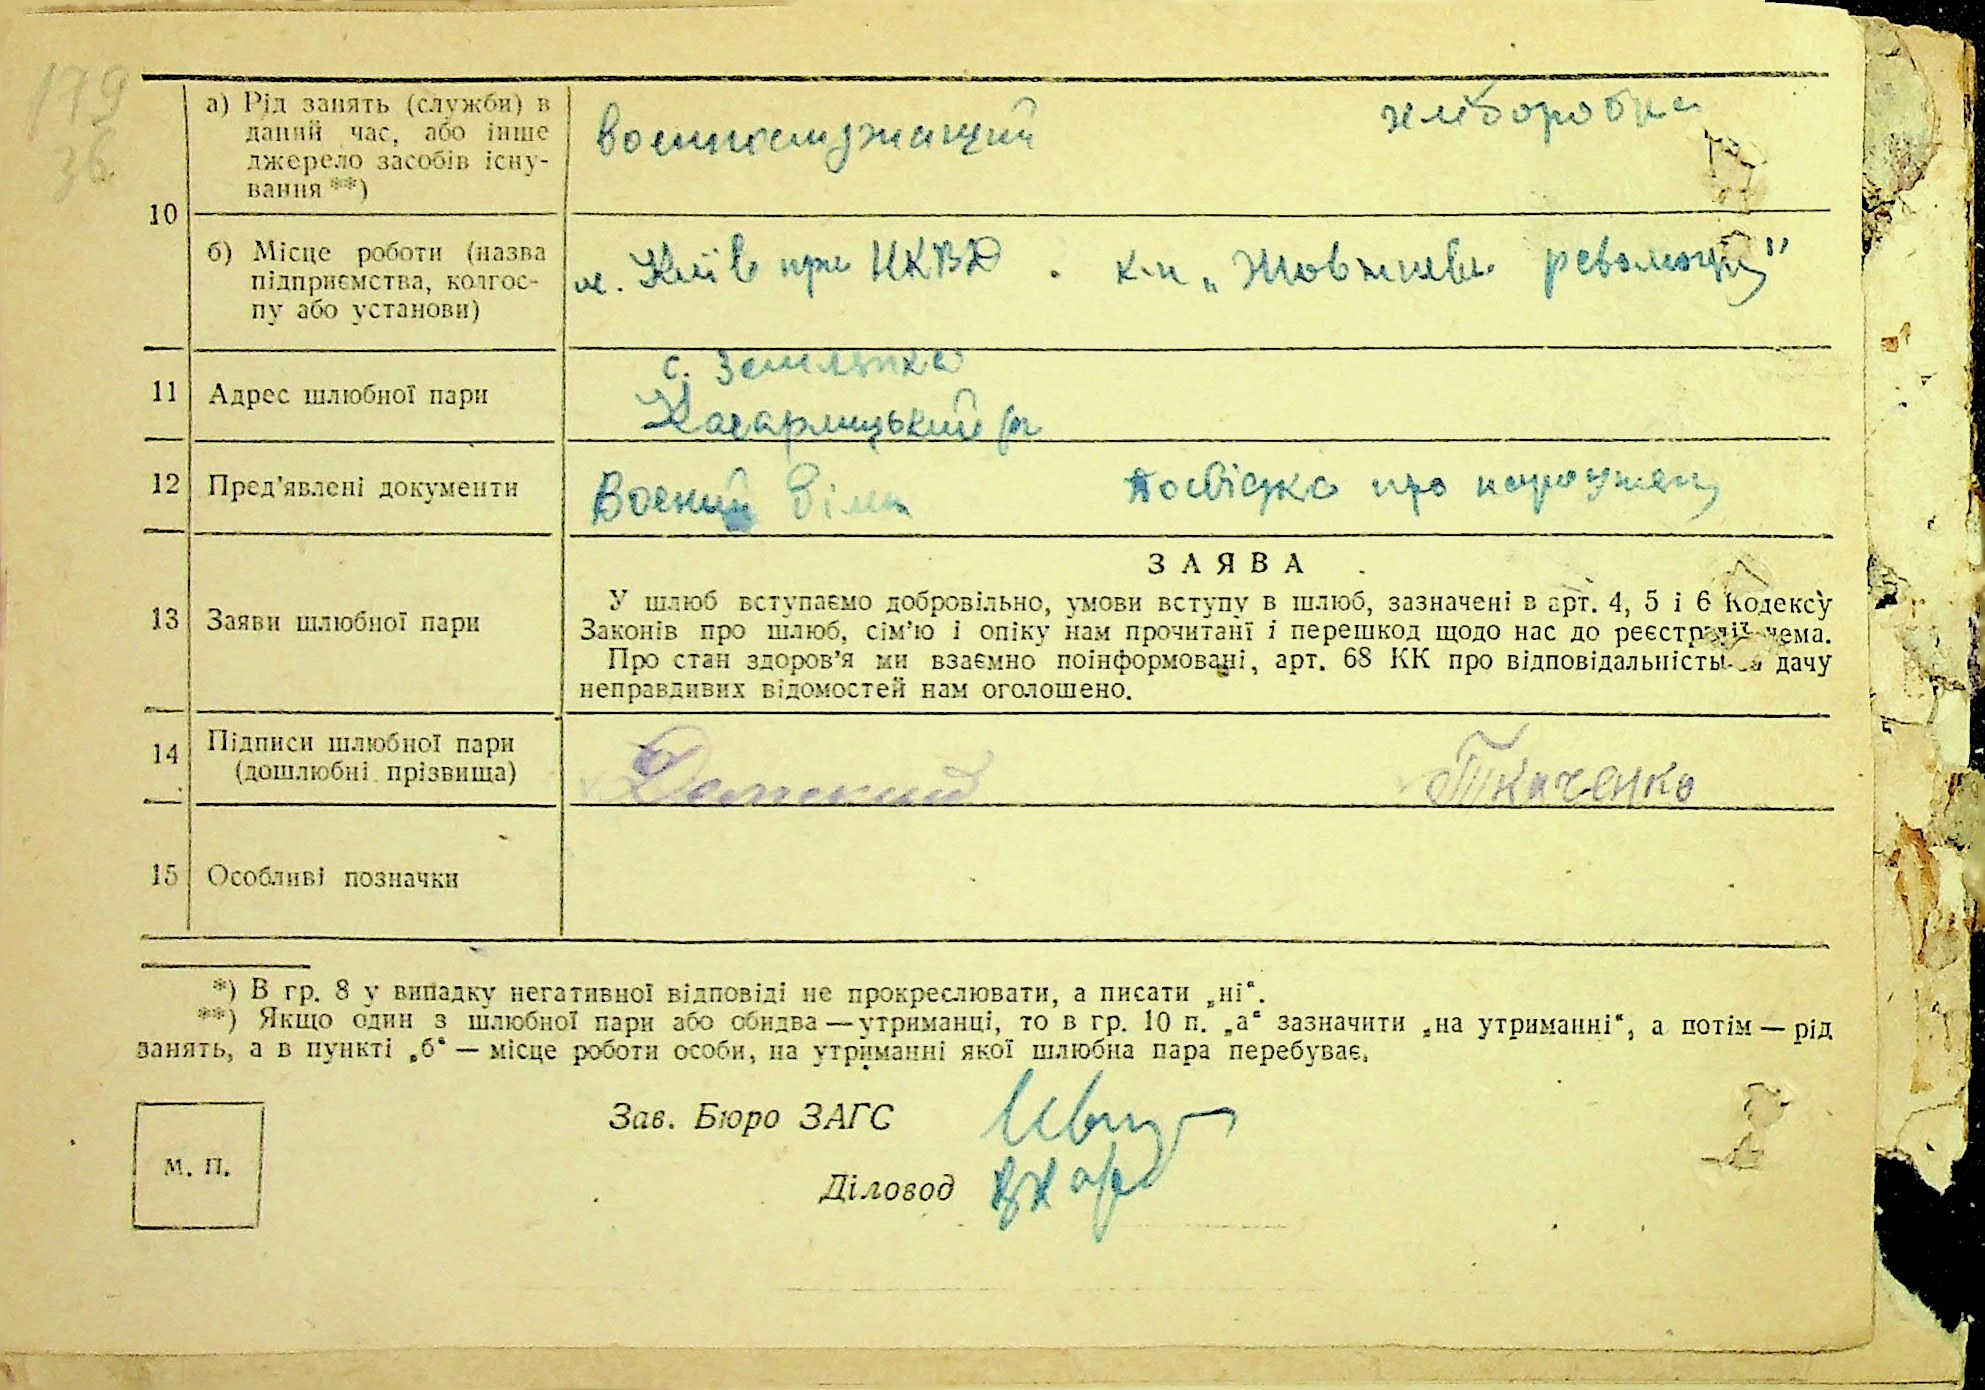 179
36
10
а) Рід занять (служби) в
даний час, або інше
джерело засобів існу-
вання **)
военнослужащий хліборобка
б) Місце роботи (назва
підприємства, колгос-
пу або установи)
м. Київ при НКВД. к-п „Жовтнева революція"
11 Адрес шлюбної пари
с. Землянка
Кагарлицький р
12 Пред'явлені документи
Воений білет Посвідка про народжен
13 Заяви шлюбної пари
ЗАЯВА
У шлюб вступаємо добровільно, умови вступу в шлюб, зазначені в арт. 4, 5 і 6 Кодексу
Законів про шлюб, сім'ю і опіку нам прочитані і перешкод щодо нас до реєстрації нема.
Про стан здоров'я ми взаємно поінформовані, арт. 68 КК про відповідальність за дачу
неправдивих відомостей нам оголошено.
14 Підписи шлюбної пари
(дошлюбні прізвища)
Ткаченко
15 Особливі позначки
*) В гр. 8 у випадку негативної відповіді не прокреслювати, а писати „ні“.
**) Якщо один з шлюбної пари або обидва — утриманці, то в гр. 10 п. „а“ зазначити „на утриманні“, а потім — рід
занять, а в пункті „б“ — місце роботи особи, на утриманні якої шлюбна пара перебуває.
Зав. Бюро ЗАГС
М. П.
Діловод